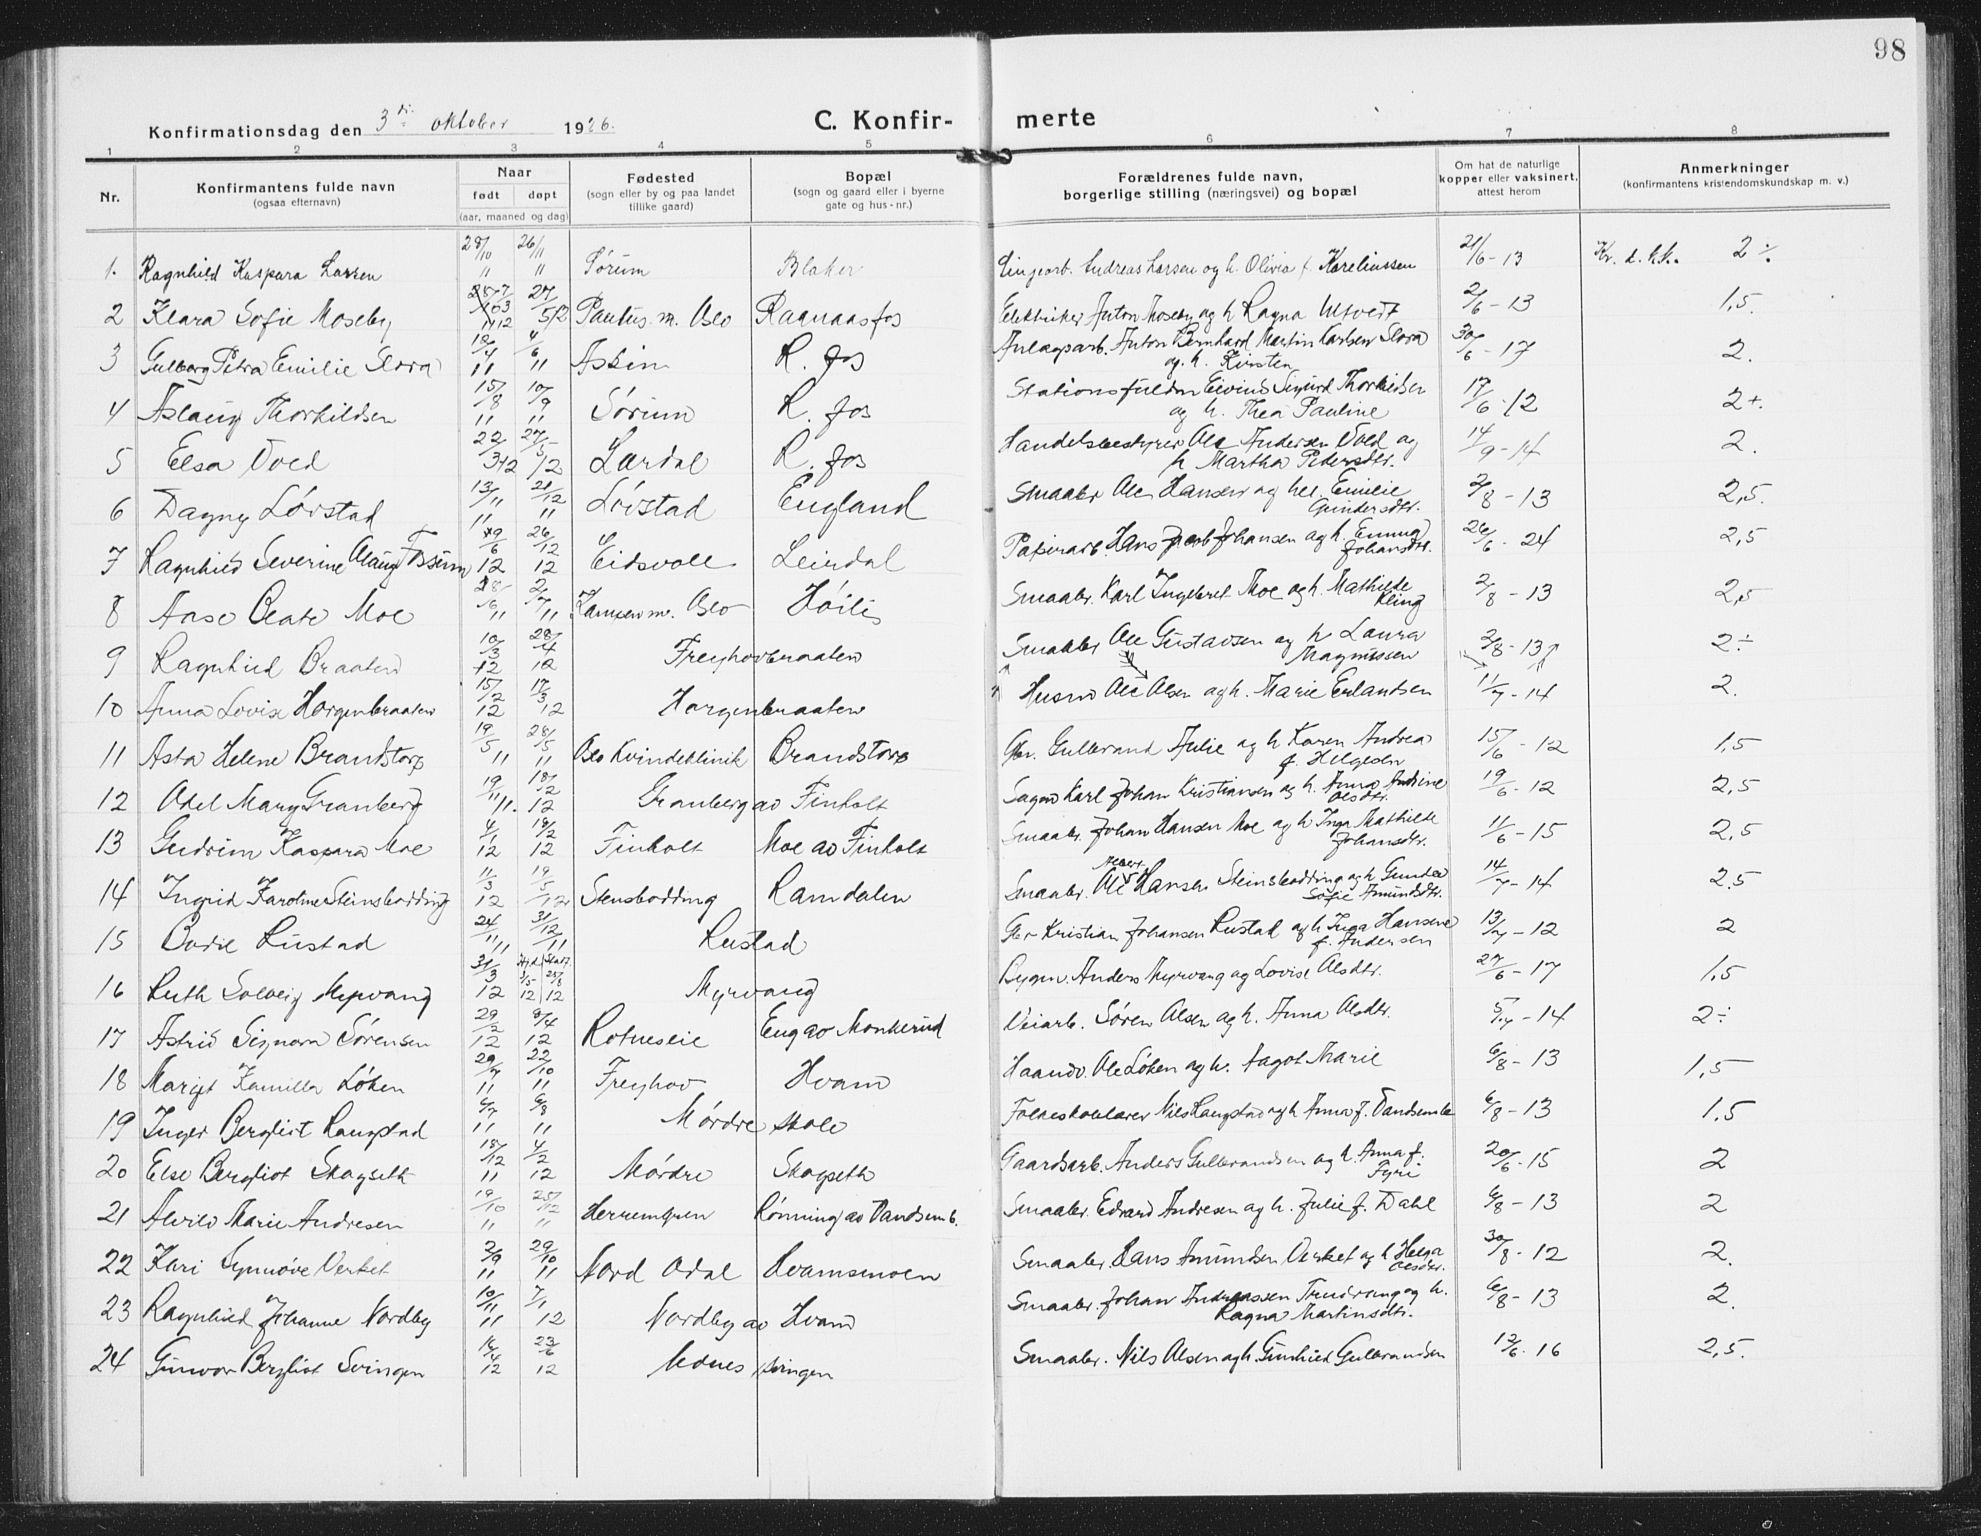 98
Konfirmationsdag den 3die oktober 1926. C. Konfir- merte
1 2 3 4 5 6 7 8
Nr. Konfirmantens fulde navn (ogsaa efternavn) Naar født døpt (aar, maaned og dag) Fødested (sogn eller by og paa landet tillike gaard) Bopæl (sogn og gaard eller i byerne gate og hus-nr.) Forældrenes fulde navn, borgerlige stilling (næringsvei) og bopæl Om hat de naturlige kopper eller vaksinert, attest herom Anmerkninger (konfirmantens kristendomskundskap m. v.)
1. Ragnhild Kaspara Larsen 28/10 11 26/11 11 Sørum Blaker Andreas Larsen og h. Olivia f. Kareliussen 21/6-13 Kr. d. k.k. 2÷
2 Klara Sofie Moseby 12 27/5 12 Paulus m. Oslo Raanaasfos Elektriker Anton Moseby og h Ragna Utvedt 2/6-13 1,5.
3 Gulborg Petra Emilie Slora 18/4 11 4/6 11 Askim R. fos Anlægsarb. Anton Bernhard Martin Karlsen Slora
og h. Kirsten 30/6-17 2.
4 Aslaug Thorkildsen 15/8 11 10/9 11 Sørum R. fos Stationsfuldm Eivind Sigurd Thorkildsen
og h. Thea Pauline 17/6-12 2+.
5 Elsa Vold 22/3 12 27/5 12 Lærdal R. fos Handelsbestyrer Ole Andersen Vold og
h Martha Pedersdtr. 14/9-14 2.
6 Dagny Lørstad 13/11 11 21/12 11 Lørstad England Smaabr Ole Hansen og hu. Emilie
Gundersdtr. 2/8-13 2,5.
7 Ragnhild Severine Olaug Fossum 19/6 12 26/12 12 Eidsvoll Leirdal Papirarb Hans Jacob Johansen og h. Emma
Johansdtr. 26/6-24 2,5
8 Aase Beate Moe 11 2/7 11 Kampen m. Oslo Høili Smaabr. Karl Ingebret Moe og h. Mathilde
Kling 2/8-13 2,5
9 Ragnhild Braaten 10/3 12 28/4 12 Freyhovbraaten Smaabr Ole Gustavsen og h Laura
Magnussen 2/8-13 2÷
10 Anna Lovise Horgenbraaten 15/2 12 17/3 12 Horgenbraaten Husm Ole Olsen og h. Marie Erlandsen 11/7-14 2.
11 Asta Helene Brandstorp 19/5 11 28/5 11 Oslo Kvindeklinik Brandstorp Gbr. Gulbrand Julie og h Karen Andrea
f. Helgesen 15/6-12 1,5
12 Odel Mary Granberg 19/11 11. 18/2 12 Granberg av Finholt Sagm Karl Johan Kristiansen og h. Anna Andrine
Olsdtr. 19/6-12 2,5
13 Gudrun Kaspara Moe 4/1 12 18/2 12 Finholt Moe av Finholt Smaabr. Johan Hansen Moe og h Inga Mathilde
Johansdtr. 11/6-15 2,5
14 Ingrid Karoline Steinsbodding 11/3 12 19/5 12 Stensbodding Ramdalen Smaabr. Ole Albert Hansen Steinsbodding og h Gunda
Sofie Amundsdtr. 14/7-14 2,5
15 Bodil Rustad 24/11 11 31/12 11 Rustad Gbr Kristian Johansen Rustad og h Inga Hansine
f. Andersen 13/7-12 2
16 Ruth Solveig Myrvang 31/3 12 Hjd. 3/5 12 Stadf. 25/8 12 Myrvang Bygm. Anders Myrvang og Lovise Olsdtr. 27/6-17 1,5
17 Astrid Signora Sørensen 29/2 12 8/4 12 Rotneseie Eng av Monkerud Veiarb. Søren Olsen og h. Anna Olsdtr. 5/7-14 2÷
18 Margit Kamilla Løken 29/7 11 22/10 11 Freyhov Hvam Haandv. Ole Løken og h. Aagot Marie 6/8-13 1,5
19 Inger Bergliot Langstad 6/7 11 6/8 11 Mørdre skole Folkeskolelærer Nils Langstad og h Anna f. Vandsemb 6/8-13 1,5
20 Else Bergliot Skogseth 18/12 11 4/2 12 Mørdre Skogseth Gaardsarb. Anders Gulbrandsen og h. Anna f.
Fyri 20/6-15 2
21 Alvild Marie Andresen 19/10 11 25/12 11 Herremyren Rønning av Vandsemb. Smaabr. Edvard Andresen og h. Julie f. Dahl 6/8-13 2
22 Kari Synnøve Verket 2/9 11 29/10 11 Nord Odal Hvamsmoen Smaabr. Hans Amundsen Verket og h Helga
Olsdtr. 30/8-12 2.
23 Ragnhild Johanne Nordby 10/11 11 7/1 12 Nordby av Hvam Smaabr. Johan Andreassen Trudvang og h.
Ragna Martinsdtr. 6/8-13 2.
24 Gunvor Bergliot Svingen 16/4 12 23/6 12 Udnes svingen Smaabr. Nils Olsen og h. Gunhild Gulbrandsen 12/6-16 2,5.